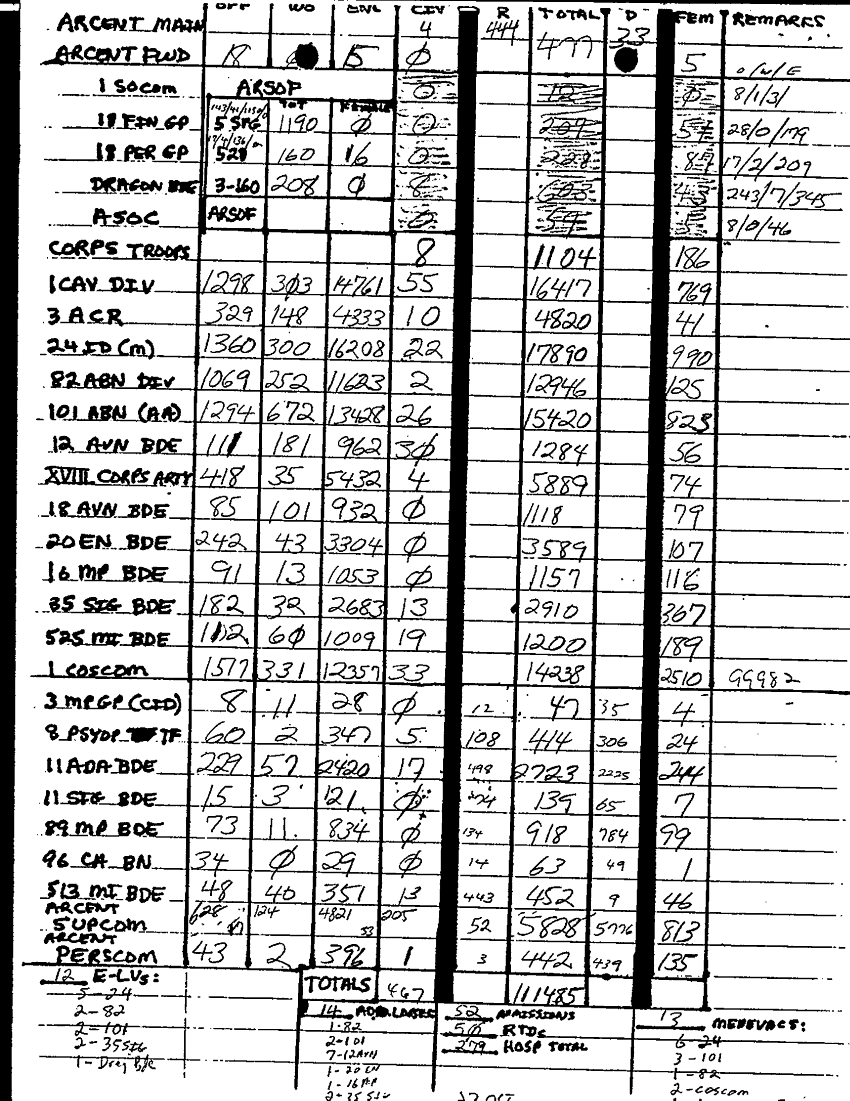 OFF WO ENL CIV R TOTAL D FEM REMARKS
ARCENT MAIN 4 444 499 33
ARCENT FWD 18 15 Ø 5 O/W/E
1 SOCOM ARSOF 0 8/1/3/
TOT FEMALE
18 FIN GP 5 SFG 1190 Ø 28/0/179
18 PER GP 528 160 16 17/2/209
DRAGON BDE 3-160 208 Ø 243/7/345
ASOC ARSOF 8/0/46
CORPS TROOPS 8 1104 186
1 CAV DIV 1298 303 14761 55 16417 769
3 ACR 329 148 4333 10 4820 41
24 ID (M) 1360 300 16208 22 17890 990
82 ABN DIV 1069 252 11623 2 12946 125
101 ABN (AA) 1294 672 13428 26 15420 823
12 AVN BDE 111 181 962 3Ø 1284 56
XVIII CORPS ARTY 418 35 5432 4 5889 74
18 AVN BDE 85 101 932 Ø 1118 79
20 EN BDE 242 43 3304 Ø 3589 107
16 MP BDE 91 13 1053 Ø 1157 116
35 SIG BDE 182 32 2683 13 2910 367
525 MI BDE 112 6Ø 1009 19 1200 189
1 COSCOM 1517 331 12357 33 14238 2510 99982
3 MP GP (CID) 8 11 28 Ø 12 47 35 4
8 PSYOP TF 60 2 347 5 108 414 306 24
11 ADA BDE 229 57 2420 17 498 2723 2225 244
11 SIG BDE 15 3 121 Ø 139 65 7
89 MP BDE 73 11 834 Ø 134 918 784 99
96 CA BN 34 Ø 29 Ø 14 63 49 1
513 MI BDE 48 40 351 13 443 452 9 46
ARCENT
SUPCOM 628 124 4821 205 53 52 5828 5776 813
ARCENT
PERSCOM 43 2 396 1 3 442 439 135
TOTALS 467 111485
12 E-LVs:
5-24
2-82
2-101
2-35 SIG
1-Drag Bde
14 ADD. LOSSES
1-82
2-101
7-12 AVN
1-20 EN
1-16 MP
2-35 SIG
52 ADMISSIONS
50 RTDs
279 HOSP TOTAL
13 MEDEVACS:
6-24
3-101
1-82
2-COSCOM
27 OCT